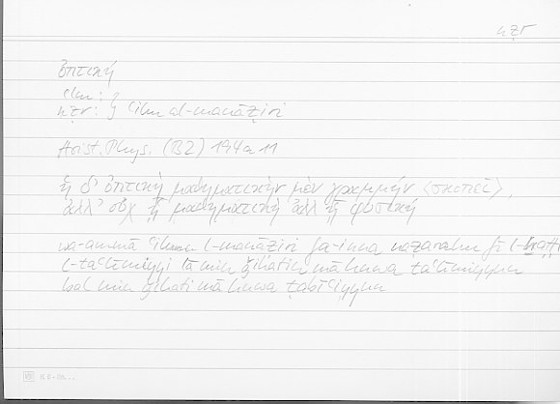 nẓr
ὀπτική
ʿlm: }
nẓr: } ʿilm al-manāẓiri
Arist. Phys. (B2) 194a 11
ἡ δ' ὀπτικὴ μαθηματικὴν μὲν γραμμήν (σκοπεῖ),
ἀλλ' οὐχ ᾗ μαθηματικὴ ἀλλ' ᾗ φυσική
wa-ammā ʿilmu l-manāẓiri fa-inna naẓarahu fī l-ḫaṭṭi
t-taʿlīmiyyi lā min ǧihati mā huwa taʿlīmiyyun
bal min ǧihati mā huwa ṭabīʿiyyun